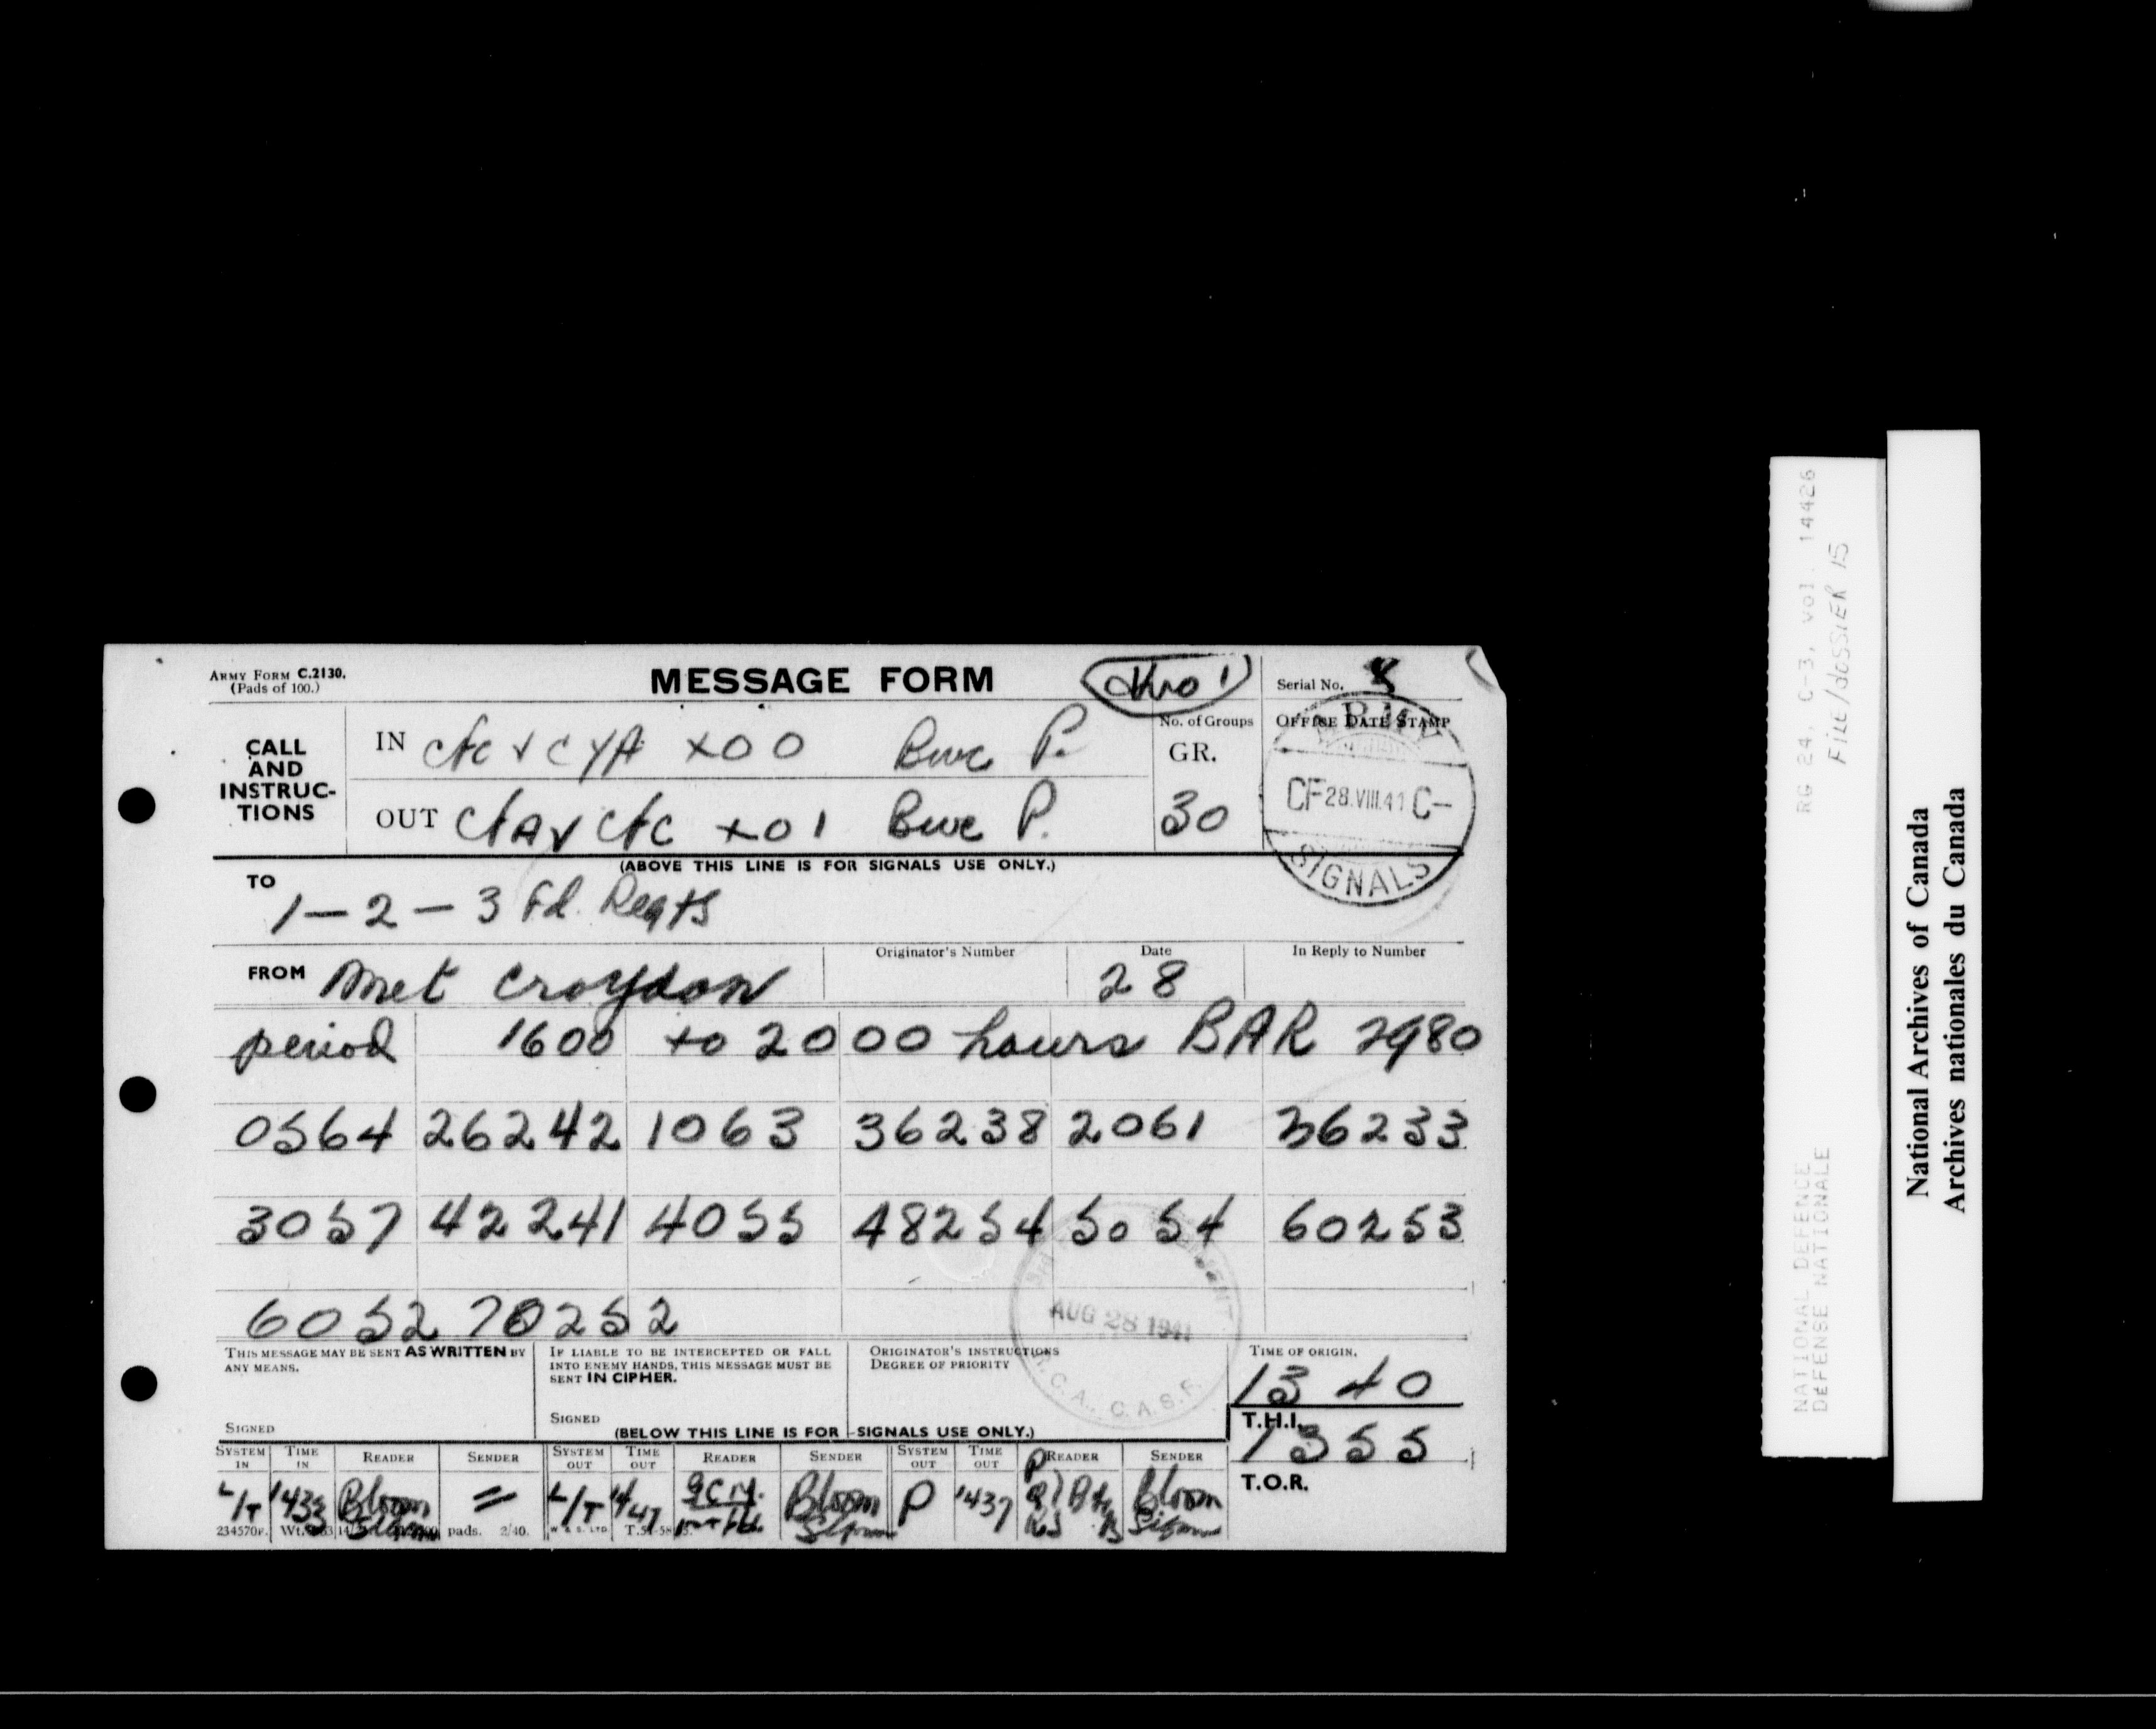 ARMY FORM C.2130.
(Pads of 100.)
MESSAGE FORM
thro 1
Serial No. 8
CALL AND INSTRUC-TIONS
IN
x00
P.
No. of Groups
GR.
30
OUT
x01
P.
OFFICE DATE STAMP
ARMY
CF 28.VIII.41 C-
SIGNALS
(ABOVE THIS LINE IS FOR SIGNALS USE ONLY.)
TO
1 - 2 - 3 Fd. Regts
FROM Met Croydon
Originator's Number
Date
28
In Reply to Number
period 1600 to 2000 hours BAR 2980
0564 26242 1063 36238 2061 36233
3057 42241 4055 48254 5054 60253
6052 70252
AUG 28 1941
R.C.A., C.A.S.F.
THIS MESSAGE MAY BE SENT AS WRITTEN BY ANY MEANS.
SIGNED
IF LIABLE TO BE INTERCEPTED OR FALL INTO ENEMY HANDS, THIS MESSAGE MUST BE SENT IN CIPHER.
SIGNED
ORIGINATOR'S INSTRUCTIONS
DEGREE OF PRIORITY
TIME OF ORIGIN.
1340
T.H.I.
1355
T.O.R.
(BELOW THIS LINE IS FOR SIGNALS USE ONLY.)
SYSTEM IN TIME IN READER SENDER SYSTEM OUT TIME OUT READER SENDER SYSTEM OUT TIME OUT READER SENDER
L/T 1433 Bloom = L/T 1447 Bloom P 1437 Bloom
Sigmn
234570F. pads. 2/40.
RG 24, C-3, vol. 14426
FILE/dOSSIER 15
NATIONAL DEFENCE
DÉFENSE NATIONALE
National Archives of Canada
Archives nationales du Canada